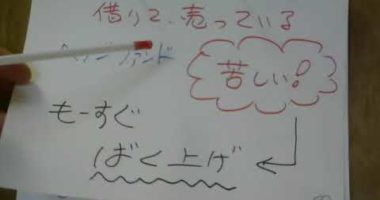 借りて、売っている
ヘッジファンド
苦しい!
もーすぐ
ばく上げ